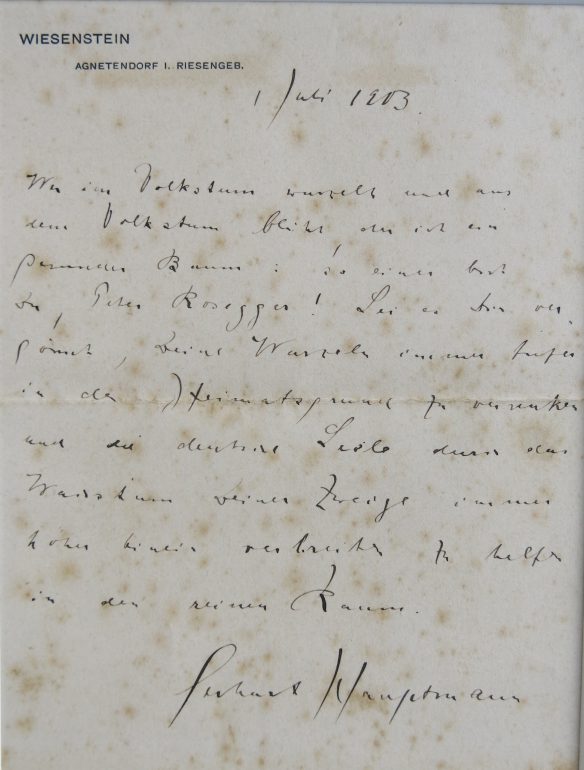 WIESENSTEIN
AGNETENDORF I. RIESENGEB.
1 Juli 1903.
Wer im Volkstum wurzelt und aus
dem Volkstum blüht, der ist ein
gesunder Baum: so einer bist
Du, Peter Rosegger! Sei es Dir ver-
gönnt, Deine Wurzeln immer tiefer
in den Heimatsgrund zu versenken
und die deutsche Seele durch das
Wachstum Deiner Zweige immer
höher hinein verbreiten zu helfen
in den reinen Raum.
Gerhart Hauptmann